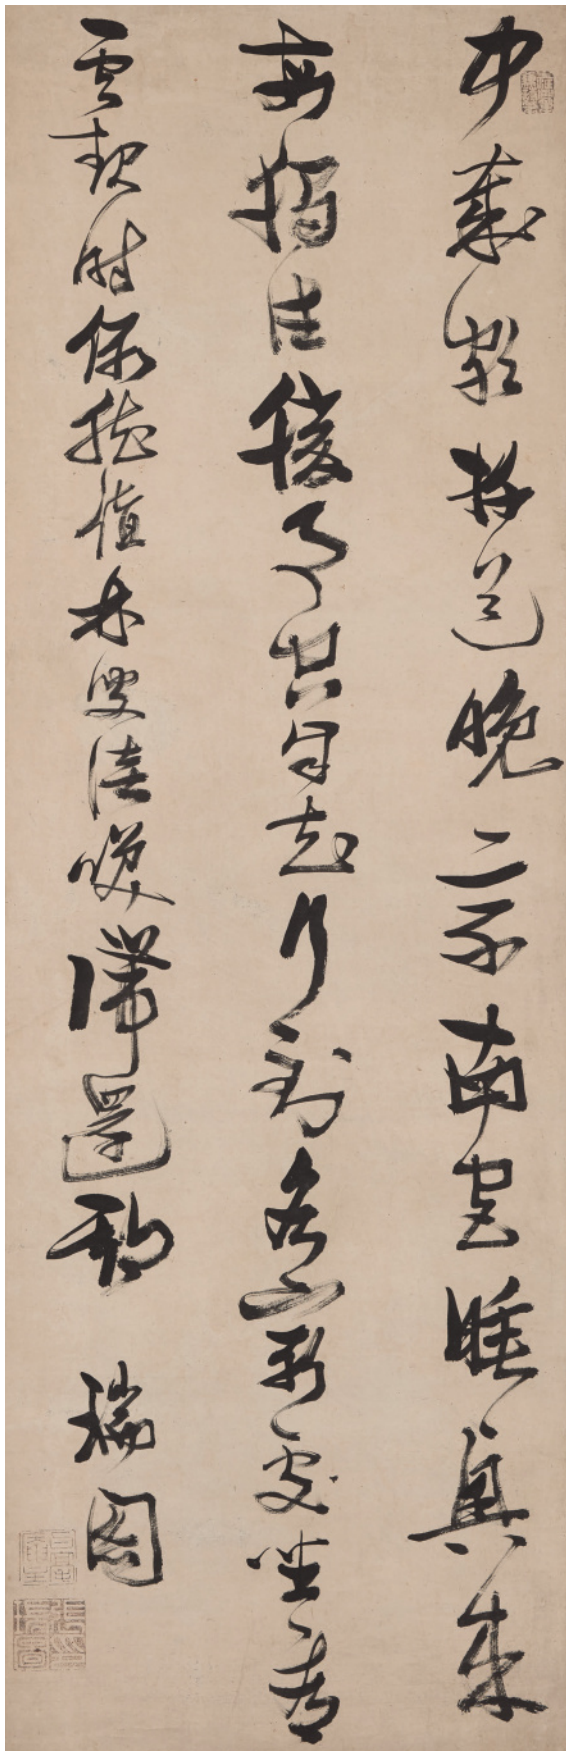 中歲頗好道晚家南山陲興來
每獨往勝事空自知行到水窮處坐看
雲起時偶然值林叟談笑滯還期 瑞圖